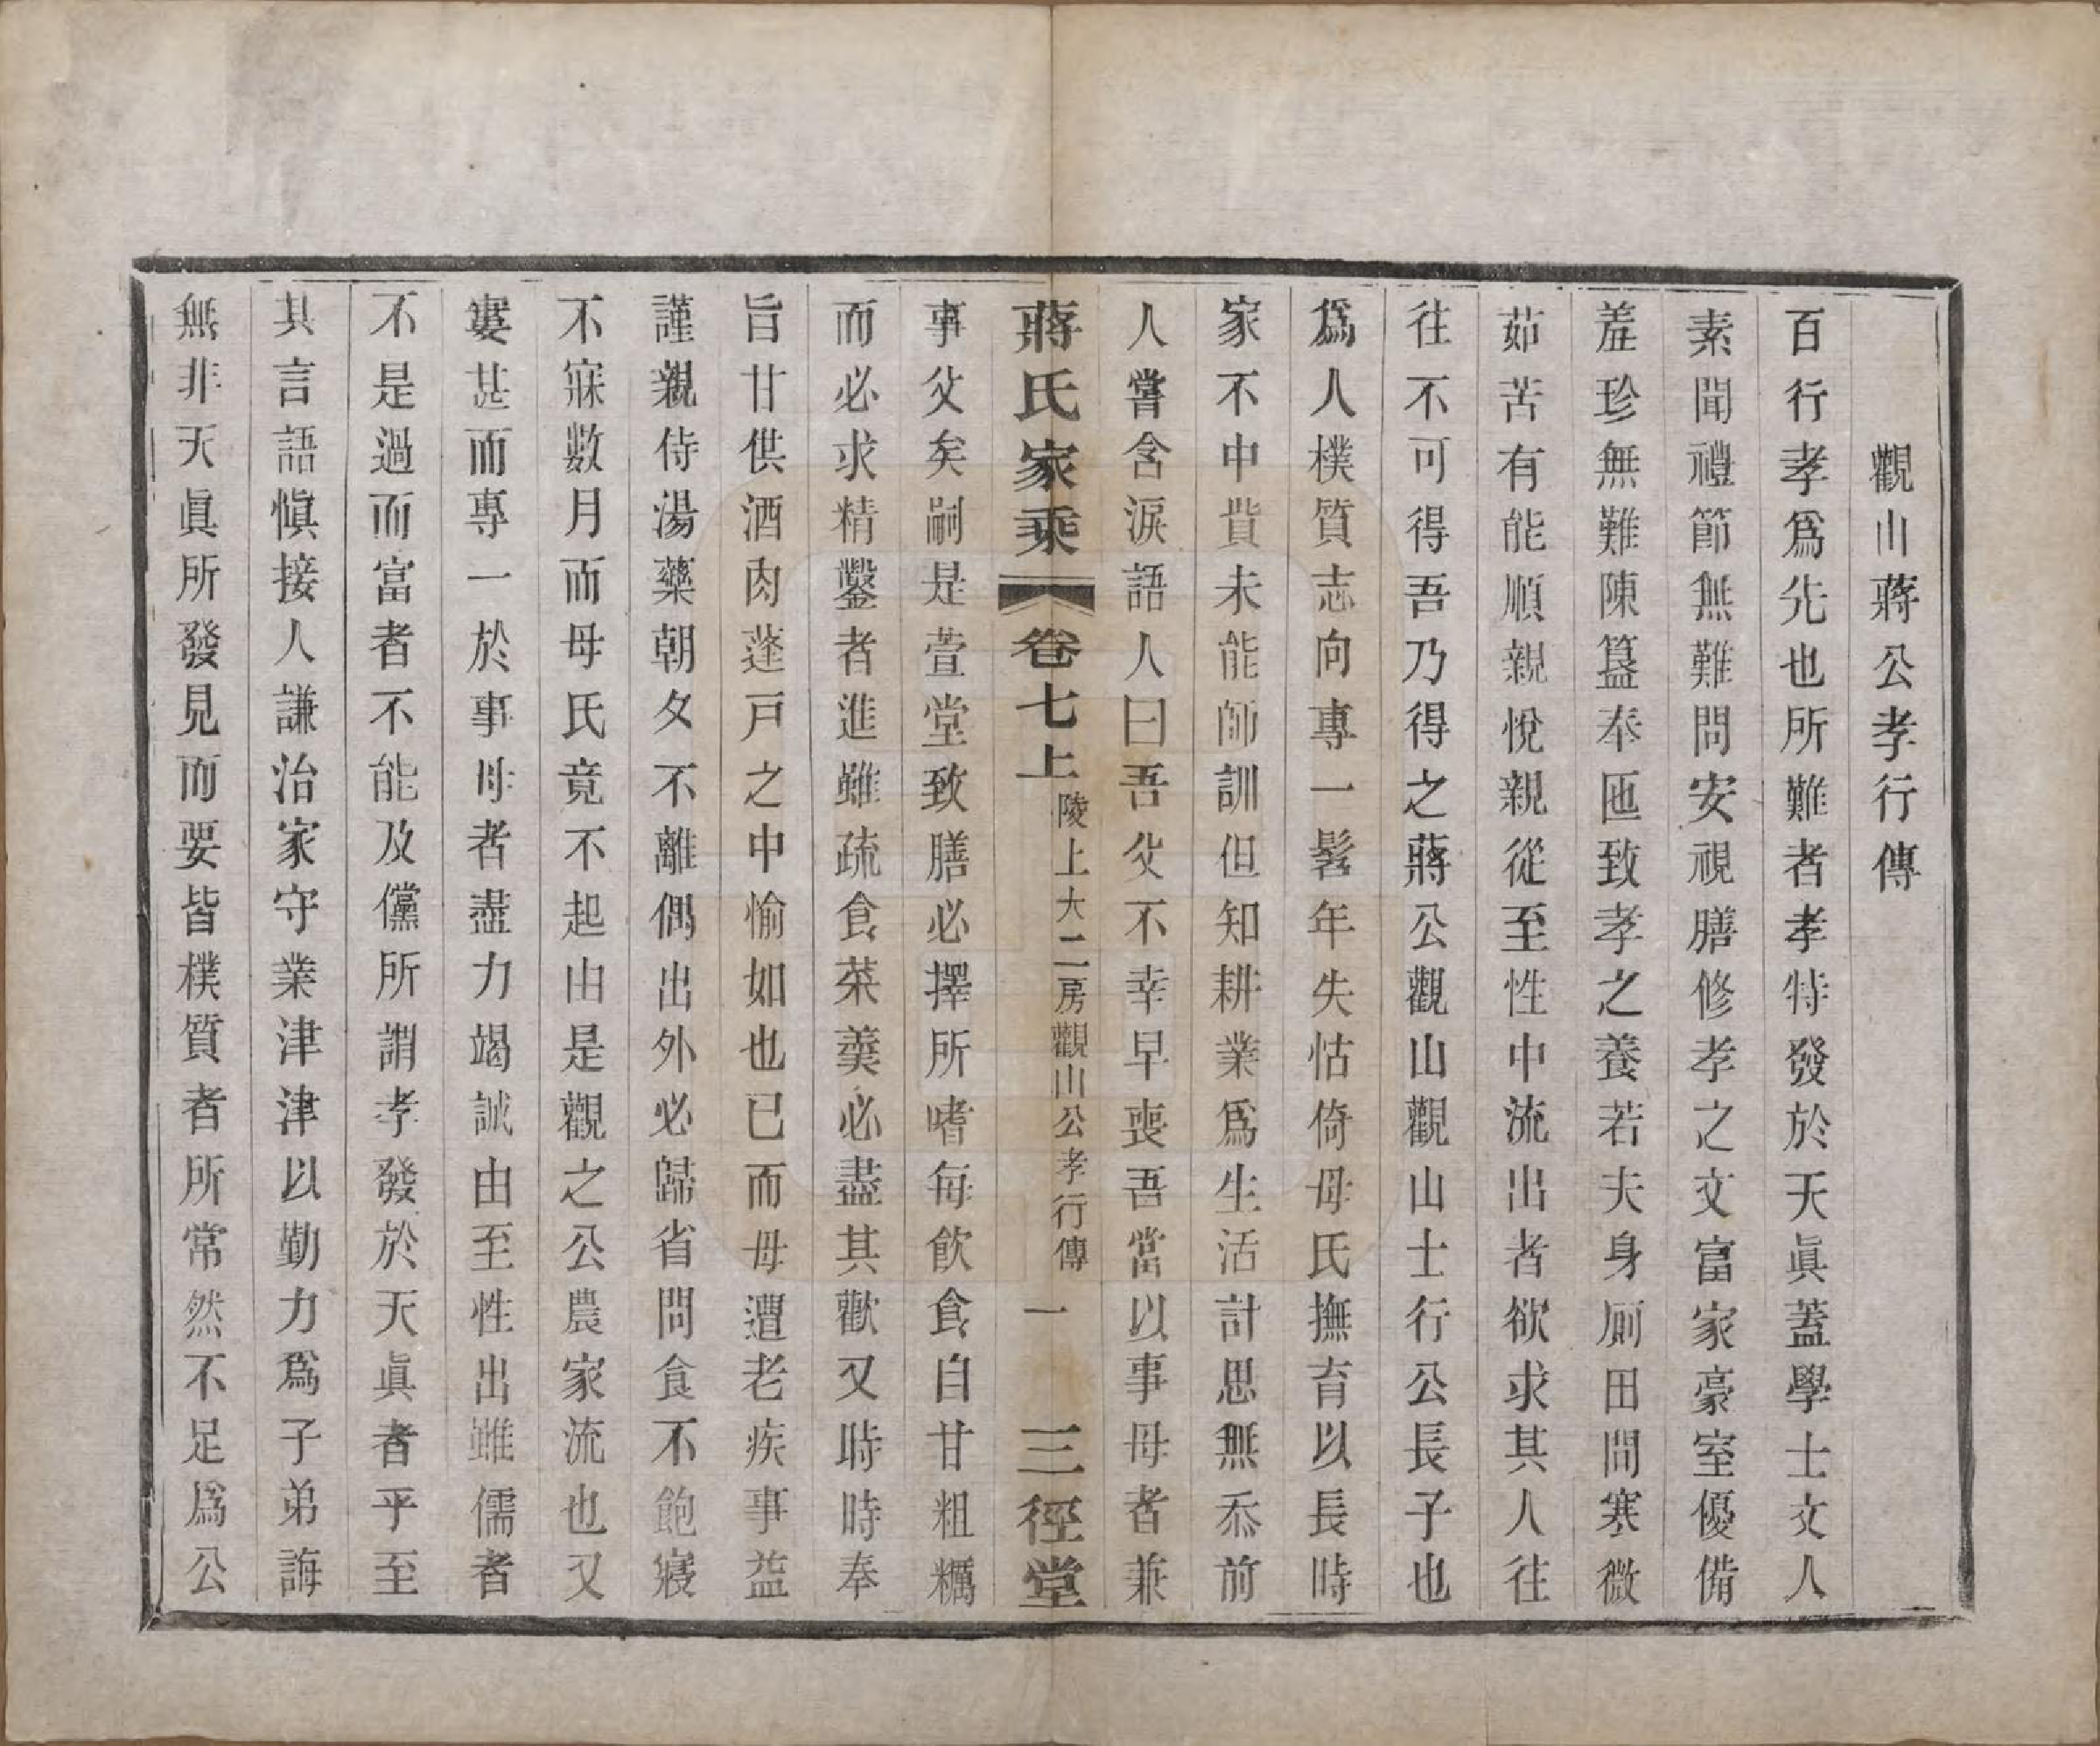 觀山蔣公孝行傳
百行孝爲先也所難者孝特發於天眞蓋學士文人
素聞禮節無難問安視膳修孝之文富家豪室優備
羞珍無難陳簋奉匜致孝之養若夫身厠田間寒微
茹苦有能順親悅親從至性中流出者欲求其人往
往不可得吾乃得之蔣公觀山觀山士行公長子也
爲人樸質志向專一髫年失怙倚母氏撫育以長時
家不中貲未能師訓但知耕業爲生活計思無忝前
人嘗含淚語人曰吾父不幸早喪吾當以事母者兼
蔣氏家乘 卷七上 陵上大二房觀山公孝行傳 一 三徑堂
事父矣嗣是萱堂致膳必擇所嗜每飲食自甘粗糲
而必求精鑿者進雖疏食菜羮必盡其歡又時時奉
旨甘供酒肉蓬戸之中愉如也已而母遭老疾事益
謹親侍湯藥朝夕不離偶出外必歸省問食不飽寢
不寐數月而母氏竟不起由是觀之公農家流也又
寠甚而專一於事母者盡力竭誠由至性出雖儒者
不是過而富者不能及儻所謂孝發於天眞者乎至
其言語愼接人謙治家守業津津以勤力爲子弟誨
無非天眞所發見而要皆樸質者所常然不足爲公